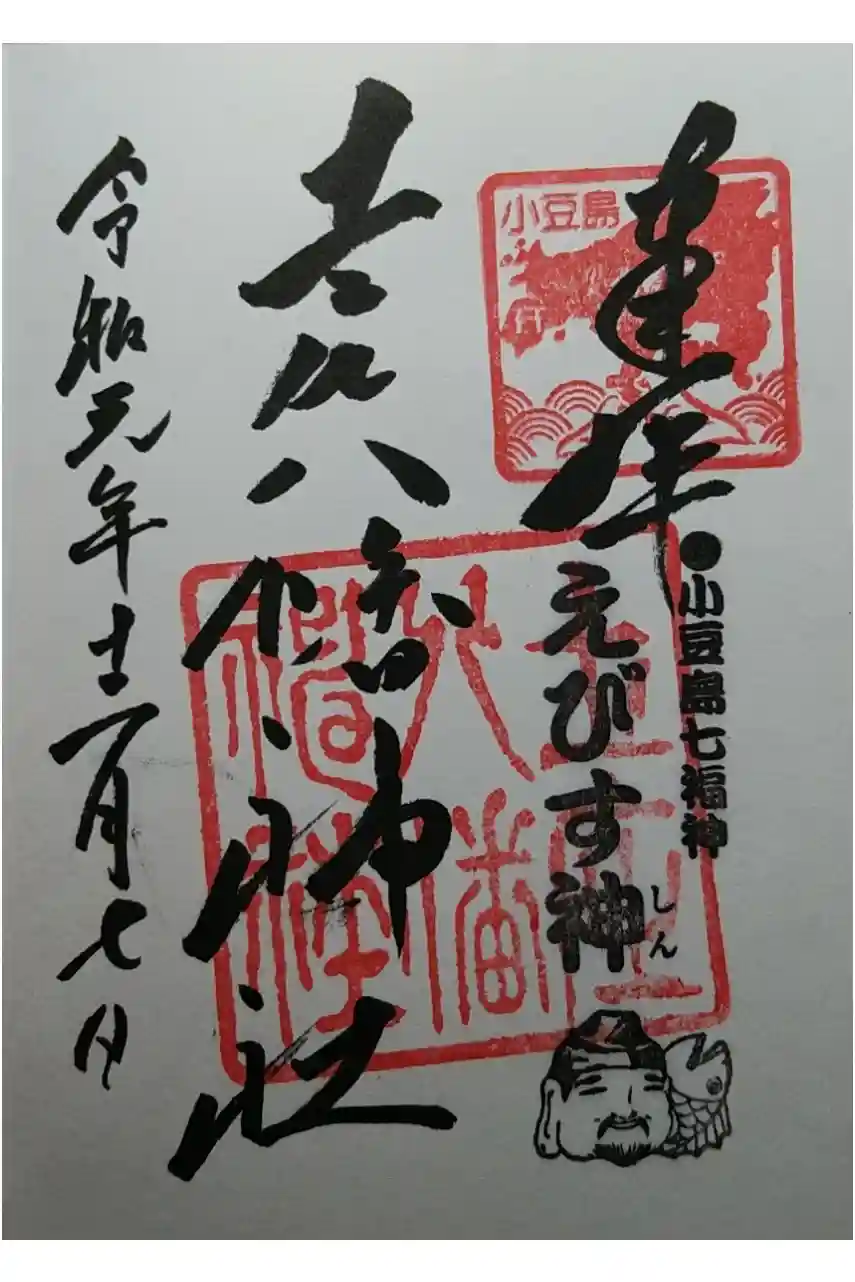 奉拝
小豆島
小豆島七福神
えびす神
しん
土庄八幡神社
令和元年十二月七日